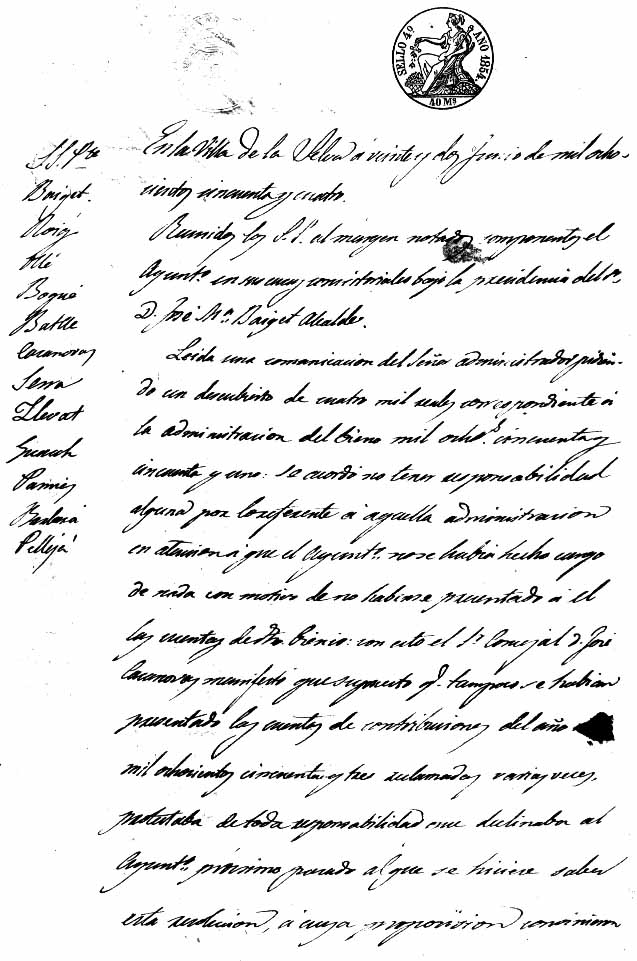 SELLO 4º AÑO 1854.
40 Ms
SS. Pte
Baiget.
Roig
Ollé
Bogué
Batlle
Casanovas
Serra
Llevat
Guasch
Pamies
Barberá
Pellejá
En la Villa de la Selva á veinte y dos Junio de mil ocho-
cientos cincuenta y cuatro.
Reunidos los SS. al margen notados componentes el
Ayuntº en sus casas consistoriales bajo la presidencia del Sr
D. José Mª Baiget Alcalde.
Leida una comunicacion del Señor administrador pidien-
do un descubierto de cuatro mil reales correspondiente á
la administracion del bieno mil ochos cincuenta y
cincuenta y uno: Se acordó no tener responsabilidad
alguna por lo referente á aquella administracion
en atencion á que el Ayuntº no se habia hecho cargo
de nada con motivo de no haberse presentado á el
las cuentas de dho bienio: con esto el Sr Concejal D. José
Casanovas manifestó que supuesto q. tampoco se habian
presentado las cuentas de contribuciones del año
mil ochocientos cincuenta y tres reclamadas varias veces,
protestaba de toda responsabilidad que declinaba al
Ayuntº próximo pasado al que se hiciese saber
esta resolucion, á cuya proposision convinieron